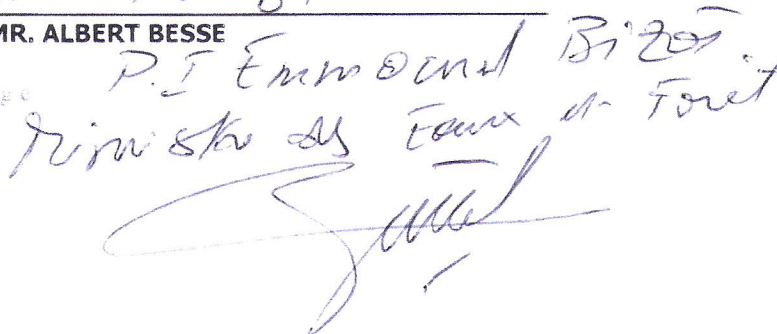 MR. ALBERT BESSE
P.I Emmanuel Bizot
Ministre des Eaux et Foret